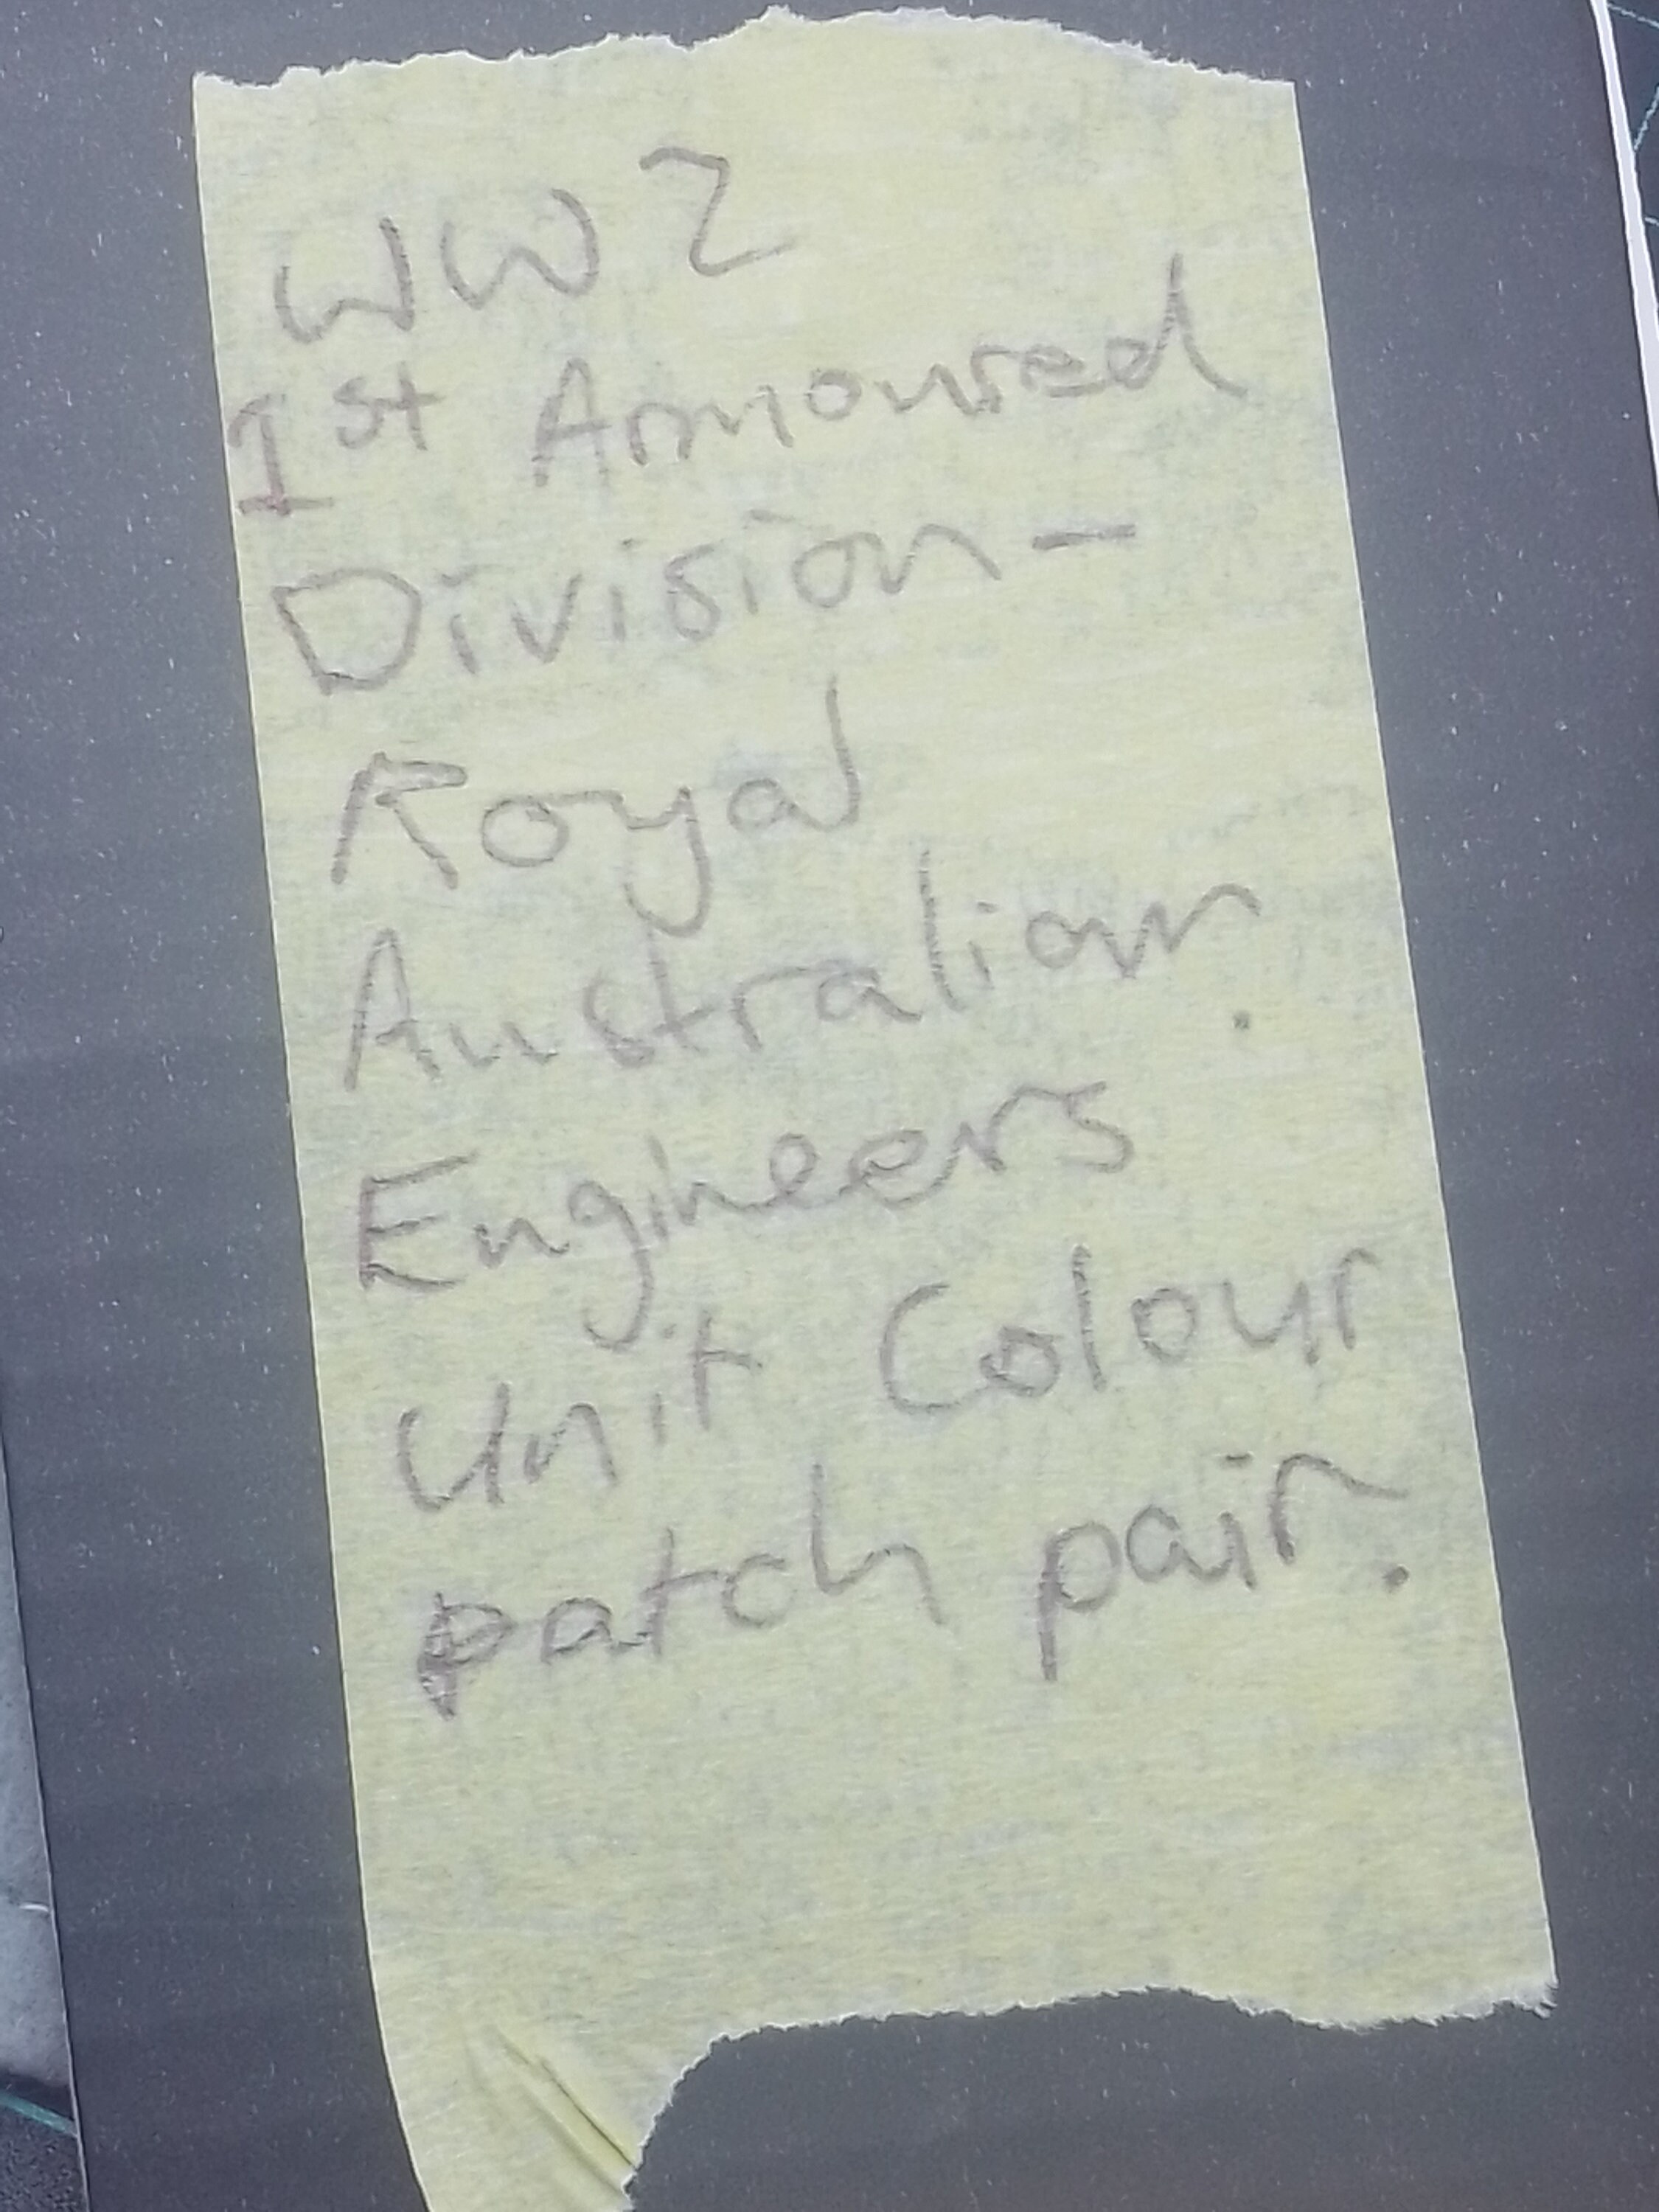 WW2
1st Armoured
Division -
Royal
Australian
Engineers
Unit Colour
patch pair.